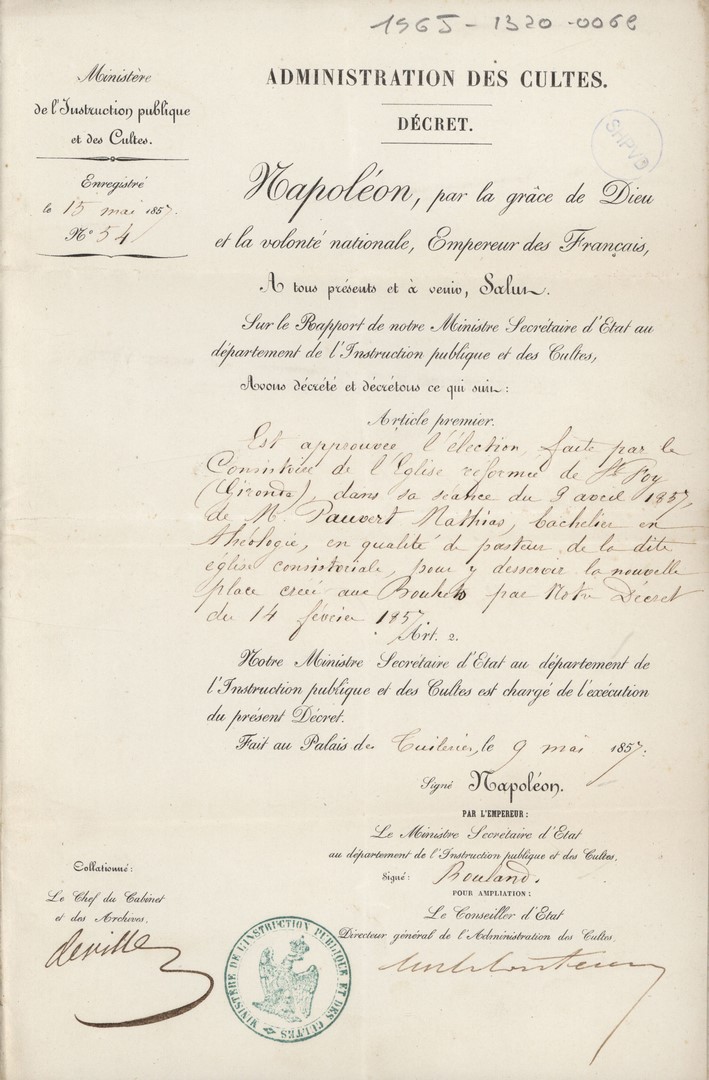 1965-1320-0068
Ministère
de l'Instruction publique
et des Cultes.
Enregistré
le 15 mai 1857.
N° 54
ADMINISTRATION DES CULTES.
DÉCRET.
SHPVD
Napoléon, par la grâce de Dieu
et la volonté nationale, Empereur des Français,
A tous présents et à venir, Salut.
Sur le Rapport de notre Ministre Secrétaire d'Etat au
département de l'Instruction publique et des Cultes,
Avons décrété et décrétons ce qui suit:
Article premier.
Est approuvée l'élection, faite par le
Consistoire de l'Eglise réformée de Ste Foy
(Gironde), dans sa séance du 9 avril 1857,
de M. Pauvert Mathias, bachelier en
théologie, en qualité de pasteur de la dite
église consistoriale, pour y desservir la nouvelle
place créée aux Bouhets par Notre Décret
du 14 février 1857.
Art. 2.
Notre Ministre Secrétaire d'Etat au département de
l'Instruction publique et des Cultes est chargé de l'exécution
du présent Décret.
Fait au Palais des Tuileries, le 9 mai 1857.
Signé Napoléon.
PAR L'EMPEREUR:
Le Ministre Secrétaire d'Etat
au département de l'Instruction publique et des Cultes,
Signé: Rouland.
POUR AMPLIATION:
Le Conseiller d'Etat
Directeur général de l'Administration des Cultes
Collationné:
Le Chef du Cabinet
et des Archives.
deville
MINISTÈRE DE L'INSTRUCTION PUBLIQUE ET DES CULTES